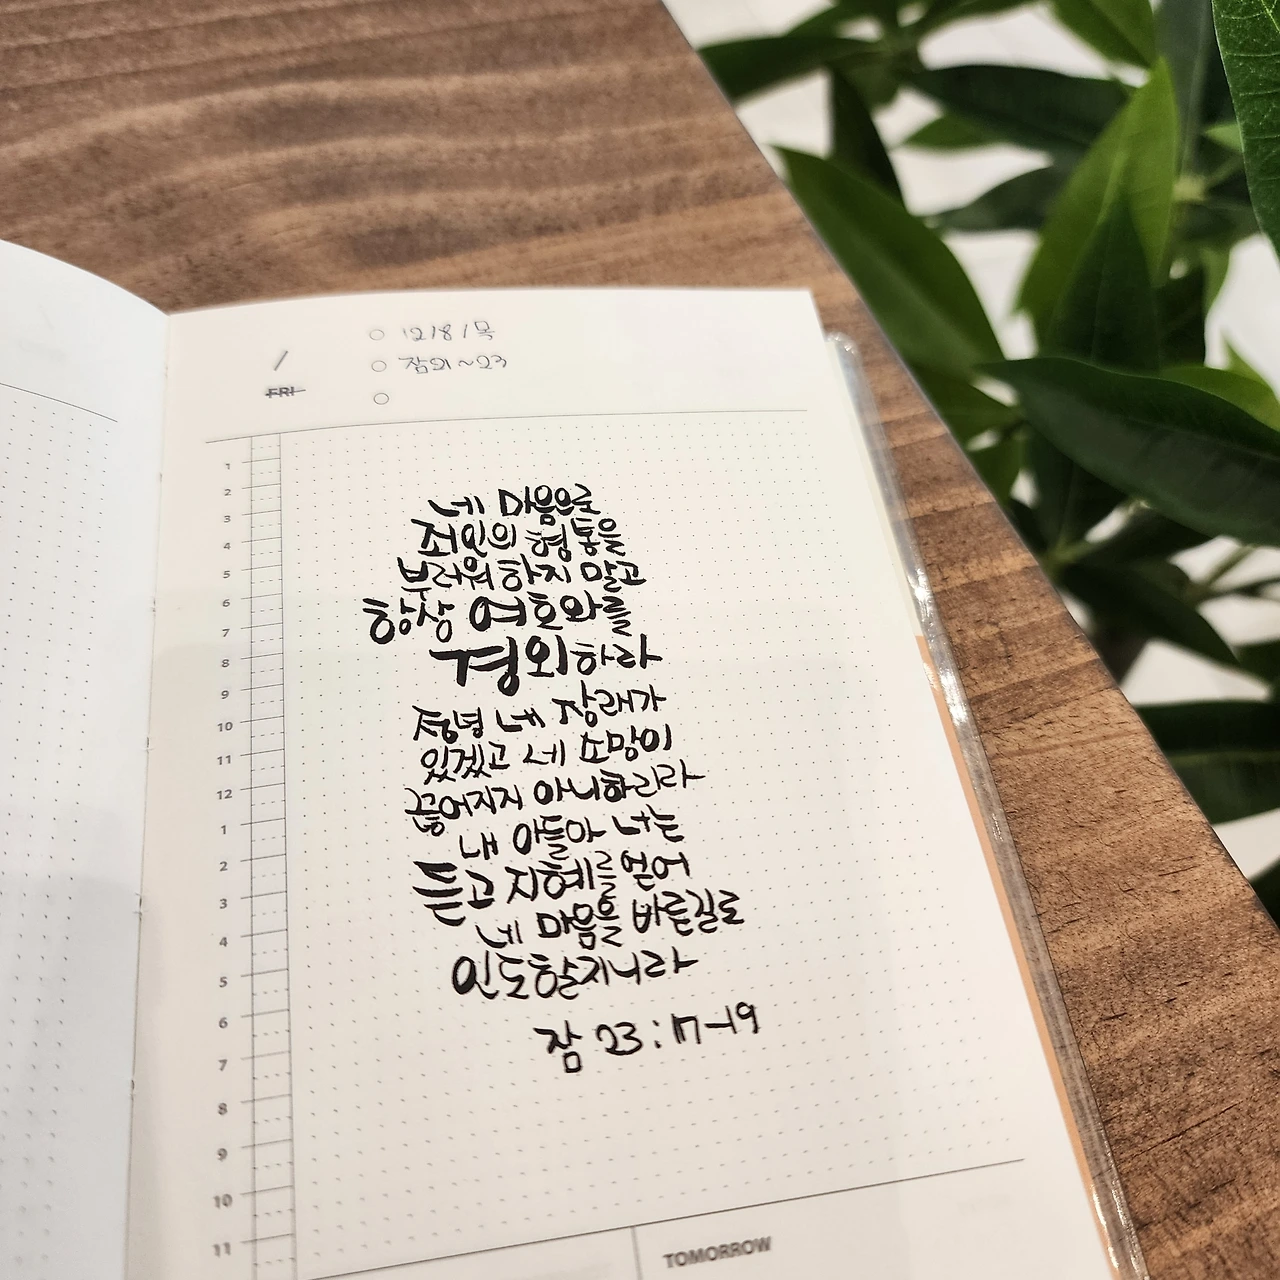 12/8/목
/
잠21~23
FRI
1
2
3
4
5
6
7
8
9
10
11
12
1
2
3
4
5
6
7
8
9
10
11
네 마음으로
죄인의 형통을
부러워 하지 말고
항상 여호와를
경외하라
정녕 네 장래가
있겠고 네 소망이
끊어지지 아니하리라
내 아들아 너는
듣고 지혜를 얻어
네 마음을 바른길로
인도할지니라
잠 23:17-19
TOMORROW